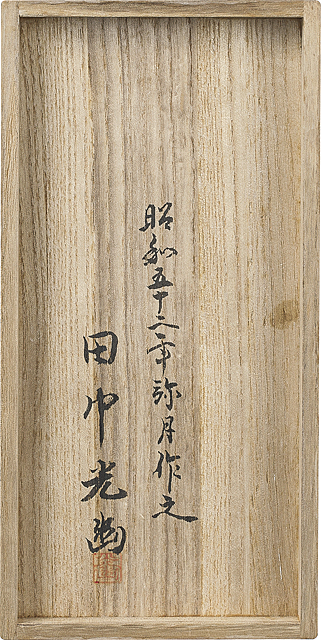 昭和五十二年弥月作之
田中光幽